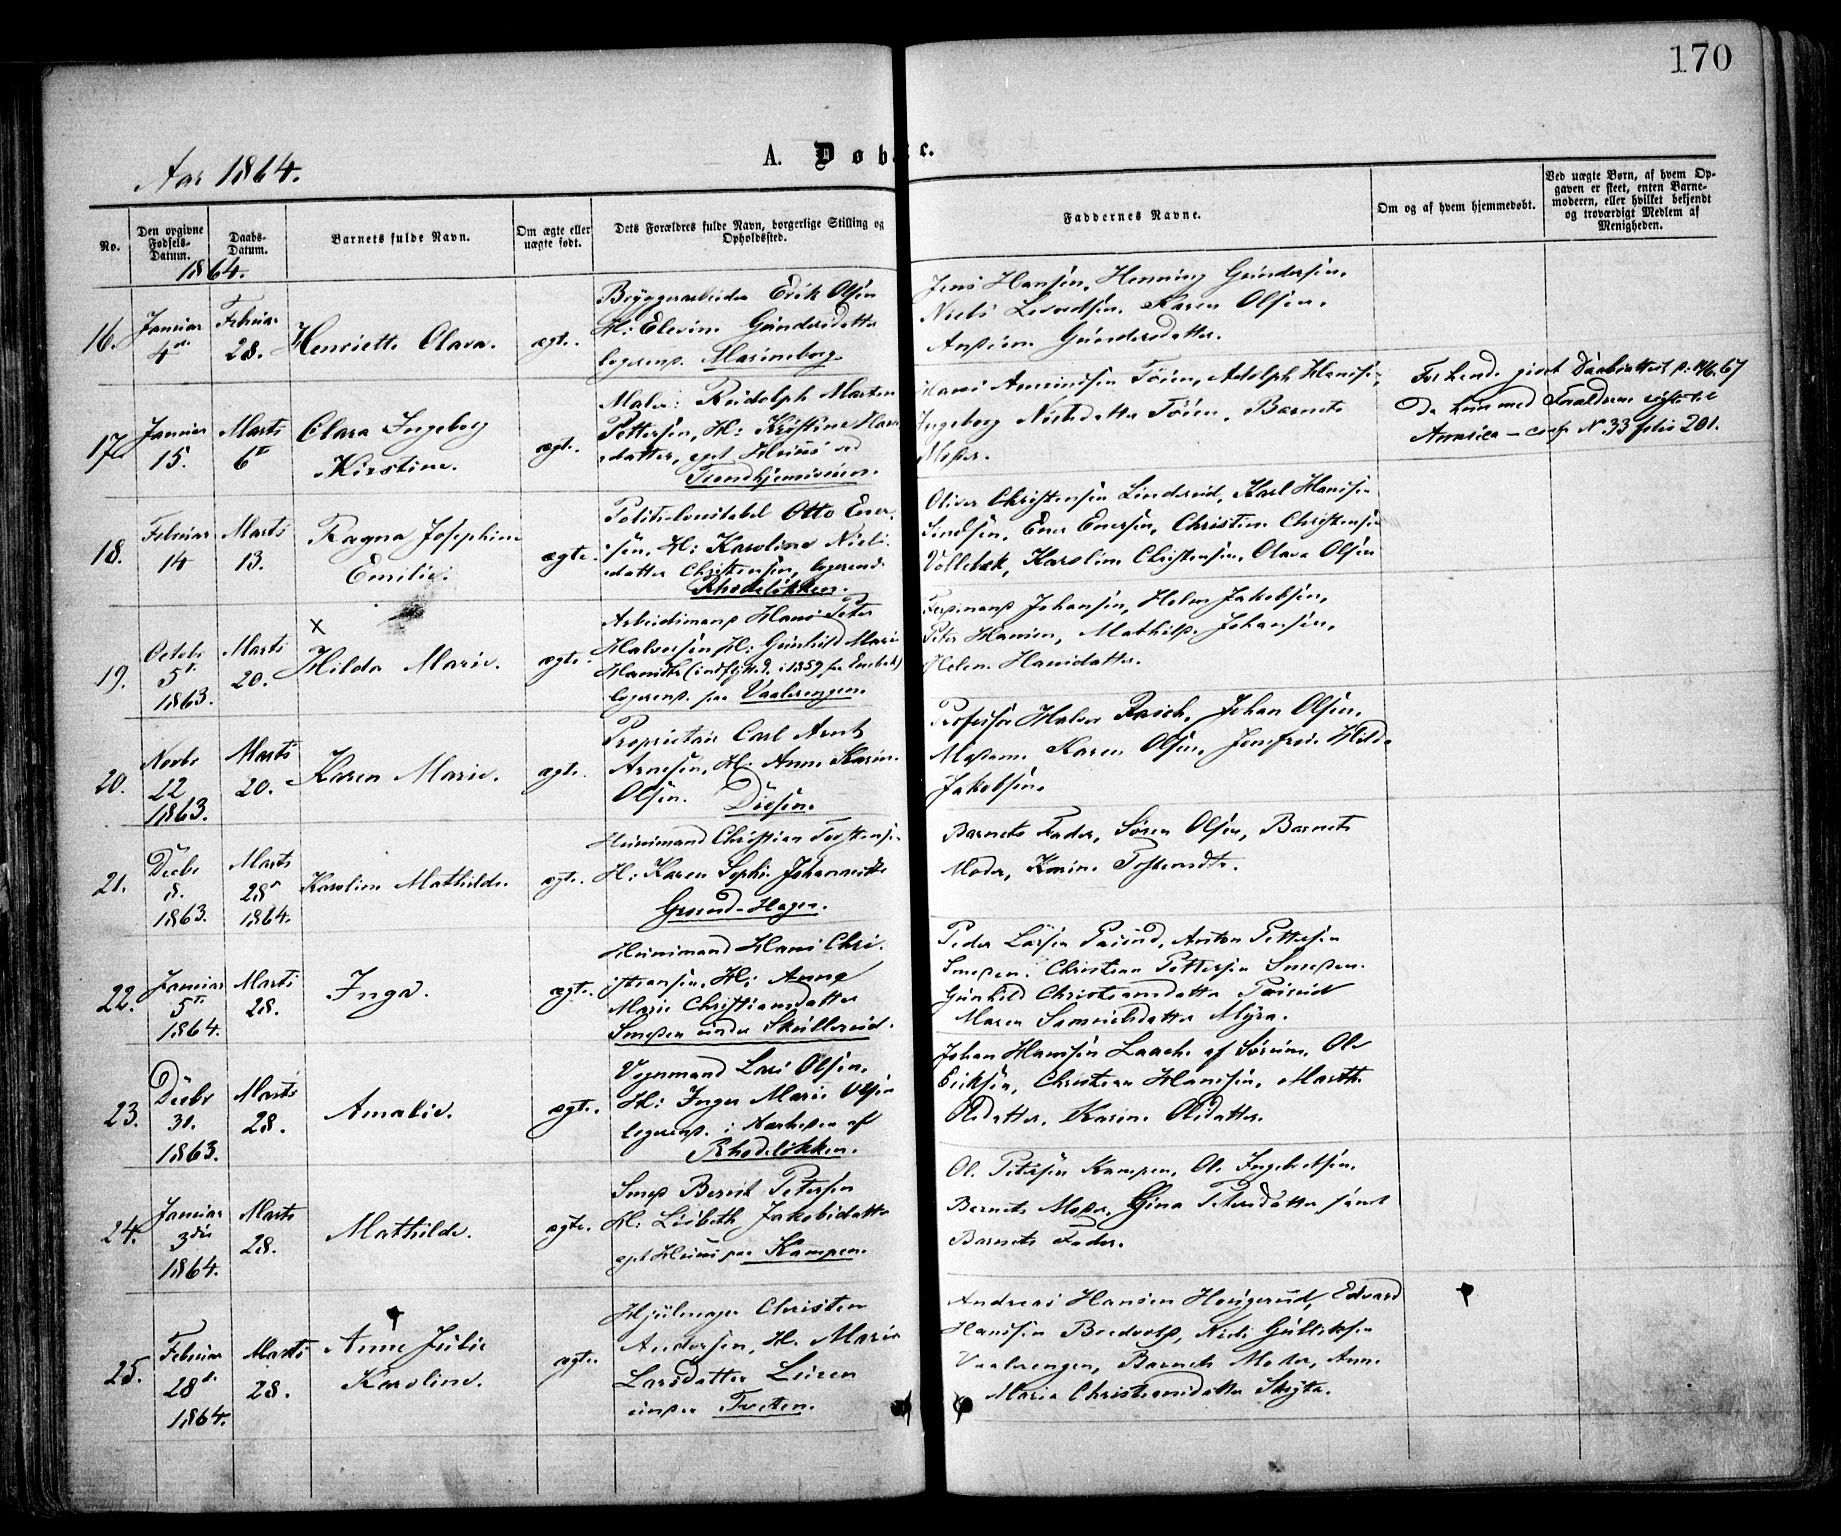 170
Aar 1864.
A. Døbte.
No.
Den opgivne Fødsels-Datum.
Daabs-Datum.
Barnets fulde Navn.
Om ægte eller uægte født.
Dets Forældres fulde Navn, borgerlige Stilling og Opholdssted.
Faddernes Navne.
Om og af hvem hjemmedøbt.
Ved uægte Børn, af hvem Opgaven er skeet, enten Barnemoderen, eller hvilket bekjendt og troværdigt Medlem af Menigheden.
1864.
16.
Januar
4de
Februar
28.
Henriette Olava.
ægte.
Bryggerarbeider Erik Olsen
H: Elevine Gundersdatter
logerend. Marineborg.
Jens Hansen, Henning Gundersen,
Niels Karen Olsen,
Gundersdatter.
17.
Januar
15.
Marts
6te
Clara Ingeborg
Kirstine.
ægte.
Maler: Rudolph Marten
Pettersen, H: Kristine Hans
datter, eget Huus ved
Trondhjemsveien.
Hans Amundsen Töien, Adolph Hansen,
Ingeborg Nielsdatter Töien, Barnets
Moder.
For hende givet Daabsattest
da hun med Forældrene reiste til
America – conf. N 33 folio 201.
18.
Februar
14
Marts
13.
Ragna Josephine
Emilie.
ægte.
Politiconstabel Otto Ener
sen, H: Karoline Niels
datter Christensen, logerende
Rhodeløkken.
Oliver Christensen Linderud, Karl Hansen
Ener Enersen, Christian Christensen
Vollebæk, Karoline Christensen, Olava Olsen
19.
Octobr
5te
1863.
Marts
20.
x
Hilda Marie.
ægte.
Arbeidsmand Hans Peter
Halvorsen H: Gunhild Marie
Hansdtr (indflyttet i 1859 fra Enebak)
logerend. paa Vaalerengen.
Ferdinand Johansen, Helene Jakobsen,
Peter Hansen, Mathilde Johansen,
Helene Hansdatter.
20.
Novbr
22
1863.
Marts
20.
Karen Marie.
ægte.
Proprietair Carl Arnt
Arnesen, H: Anne Karine
Olsen. Disen.
Professor Halvor Rasch, Johan Olsen,
Madame Karen Olsen, Jomfru Hilda
Jakobsen.
21.
Decbr
8.
1863.
Marts
28de
1864.
Karoline Mathilde.
ægte.
Huusmand Christian Torstensen
H: Karen Sophie Johannesdtr
Grorud-Hagen.
Barnets Fader, Sören Olsen, Barnets
Moder, Karine Torstensdtr.
22.
Januar
5te
1864.
Marts
28.
Inga.
ægte.
Huusmand Hans Chri
stiansen, H: Anne
Marie Christiansdatter
Smedsen under Skullerud.
Peder Larsen Anton Pettersen
Christian Pettersen
Gunhild Christiansdatter
Maren Samuelsdatter Myra.
23.
Decbr
31.
1863.
Marts
28.
Amalie.
ægte.
Vognmand Lars Olsen,
H: Inger Marie Olsen
logerend. i Nærheden af
Rhodeløkken.
Johan Hansen Laache af Sørum, Ole
Eriksen, Christian Hansen, Marthe
Olsdatter, Karine Olsdatter.
24.
Januar
3die
1864.
Marts
28.
Mathilde.
ægte.
Smed Bernt Petersen
H: Lisbeth Jakobsdatter
eget Huus paa Kampen.
Ole Petersen Kampen, Ole Ingebretsen,
Barnets Moder, Gina Petersdatter samt
Barnets Fader.
25.
Februar
28de
1864.
Marts
28.
Anne Julie
Karoline.
ægte.
Hjulmager Christen
Andersen, H. Maria
Larsdatter Luren
under Tveten.
Andreas Hansen Haugerud, Edvard
Hansen Bredvold, Niels Gulliksen
Vaalerengen, Barnets Moder, Anne
Maria Christiansdatter